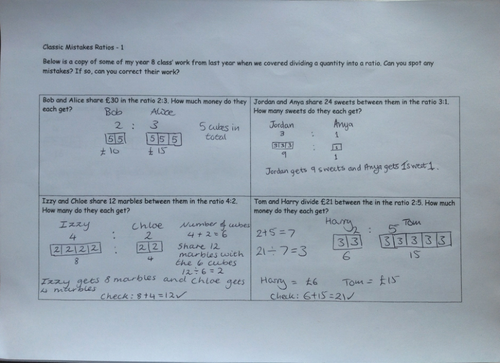 Classic Mistakes Ratios - 1
Below is a copy of some of my year 8 class' work from last year when we covered dividing a quantity into a ratio. Can you spot any
mistakes? If so, can you correct their work?
Bob and Alice share £30 in the ratio 2:3. How much money do they
each get?
Bob Alice
2 : 3
5 5 5 5 5
£10 £15
5 cubes in
total
Jordan and Anya share 24 sweets between them in the ratio 3:1.
How many sweets do they get?
Jordan Anya
3 : 1
3 3 3 1
9 1
Jordan gets 9 sweets and Anya gets 1 sweet 1.
Izzy and Chloe share 12 marbles between them in the ratio 4:2.
How many do they each get?
Izzy Chloe
4 : 2
2 2 2 2 2 2
8 4
Number of cubes
4 + 2 = 6
Share 12
marbles with
the 6 cubes
12 ÷ 6 = 2
Izzy gets 8 marbles and Chloe gets
4 marbles
Check: 8+4=12✓
Tom and Harry divide £21 between the in the ratio 2:5. How much
money do they each get?
2+5=7
21÷7=3
Harry Tom
2 : 5
3 3 3 3 3 3 3
6 15
Harry = £6 Tom = £15
Check: 6+15=21✓